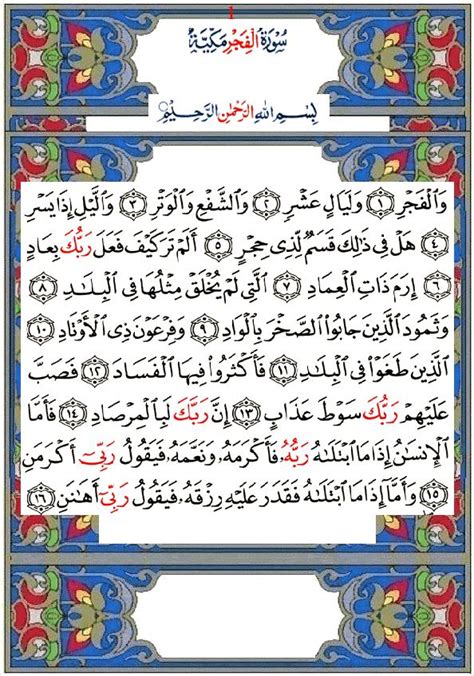 1
سُورَةُ الْفَجْرِ مَكِيَّة
بِسْمِ اللهِ الرَّحْمٰنِ الرَّحِيْمِ
وَٱلۡفَجۡرِ ١ وَلَيَالٍ عَشۡرٖ ٢ وَٱلشَّفۡعِ وَٱلۡوَتۡرِ ٣ وَٱلَّيۡلِ إِذَا يَسۡرِ
٤ هَلۡ فِي ذَٰلِكَ قَسَمٞ لِّذِي حِجۡرٍ ٥ أَلَمۡ تَرَ كَيۡفَ فَعَلَ رَبُّكَ بِعَادٍ
٦ إِرَمَ ذَاتِ ٱلۡعِمَادِ ٧ ٱلَّتِي لَمۡ يُخۡلَقۡ مِثۡلُهَا فِي ٱلۡبِلَٰدِ ٨
وَثَمُودَ ٱلَّذِينَ جَابُواْ ٱلصَّخۡرَ بِٱلۡوَادِ ٩ وَفِرۡعَوۡنَ ذِي ٱلۡأَوۡتَادِ ١٠
ٱلَّذِينَ طَغَوۡاْ فِي ٱلۡبِلَٰدِ ١١ فَأَكۡثَرُواْ فِيهَا ٱلۡفَسَادَ ١٢ فَصَبَّ
عَلَيۡهِمۡ رَبُّكَ سَوۡطَ عَذَابٍ ١٣ إِنَّ رَبَّكَ لَبِٱلۡمِرۡصَادِ ١٤ فَأَمَّا
ٱلۡإِنسَٰنُ إِذَا مَا ٱبۡتَلَىٰهُ رَبُّهُۥ فَأَكۡرَمَهُۥ وَنَعَّمَهُۥ فَيَقُولُ رَبِّيٓ أَكۡرَمَنِ
١٥ وَأَمَّآ إِذَا مَا ٱبۡتَلَىٰهُ فَقَدَرَ عَلَيۡهِ رِزۡقَهُۥ فَيَقُولُ رَبِّيٓ أَهَٰنَنِ ١٦